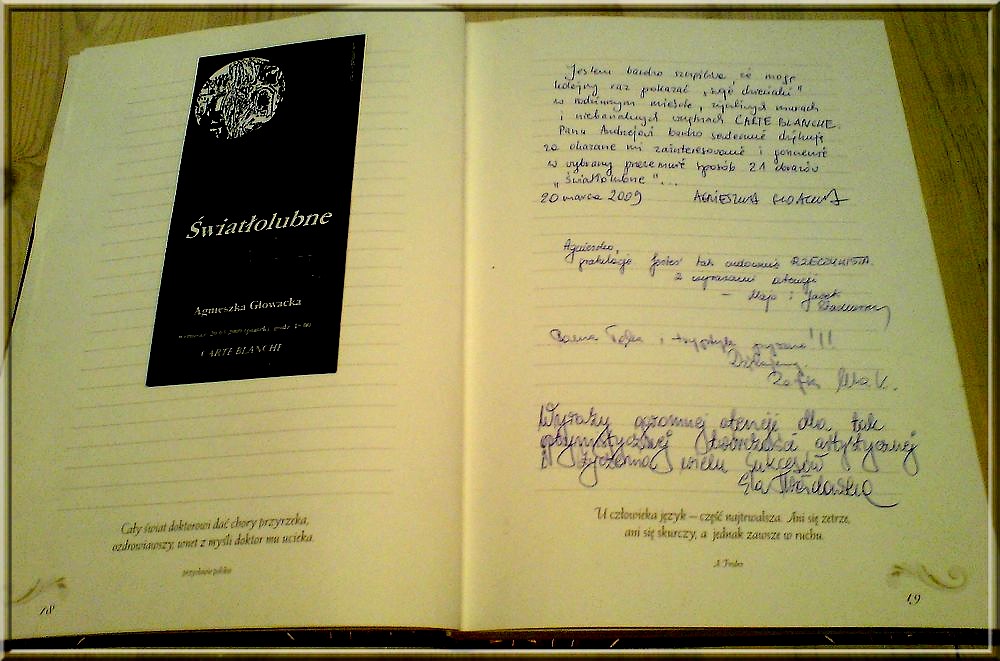 Światłolubne
Agnieszka Głowacka
wernisaż 20.03.2009 (piątek), godz. 18.00
CARTE BLANCHE
Cały świat doktorowi dać chory przyrzeka,
ozdrowiawszy, wnet z myśli doktor mu ucieka.
przysłowie polskie
18
Jestem bardzo szczęśliwa że mogę
kolejny raz pokazać „swoje
w rodzinnym mieście, murach
i niebanalnych wnętrzach CARTE BLANCHE.
Panu Andrzejowi bardzo serdecznie dziękuję
za okazane mi zainteresowanie i
w wybrany sposób 21 obrazów
„Światłolubne”...
20 marca 2009 AGNIESZKA GŁOWACKA
Agnieszko,
jesteś tak cudownie RZECZYWISTA.
z wyrazami atencji
— Maja i Jacek
i tryptyk !!!
Dziękujemy
Zofia
Wyrazy ogromnej atencji dla tak
optymistycznej twórczości artystycznej
i życzenia wielu sukcesów
Ela
U człowieka język – część najtrwalsza. Ani się zetrze,
ani się skurczy, a jednak zawsze w ruchu.
A. Fredro
19